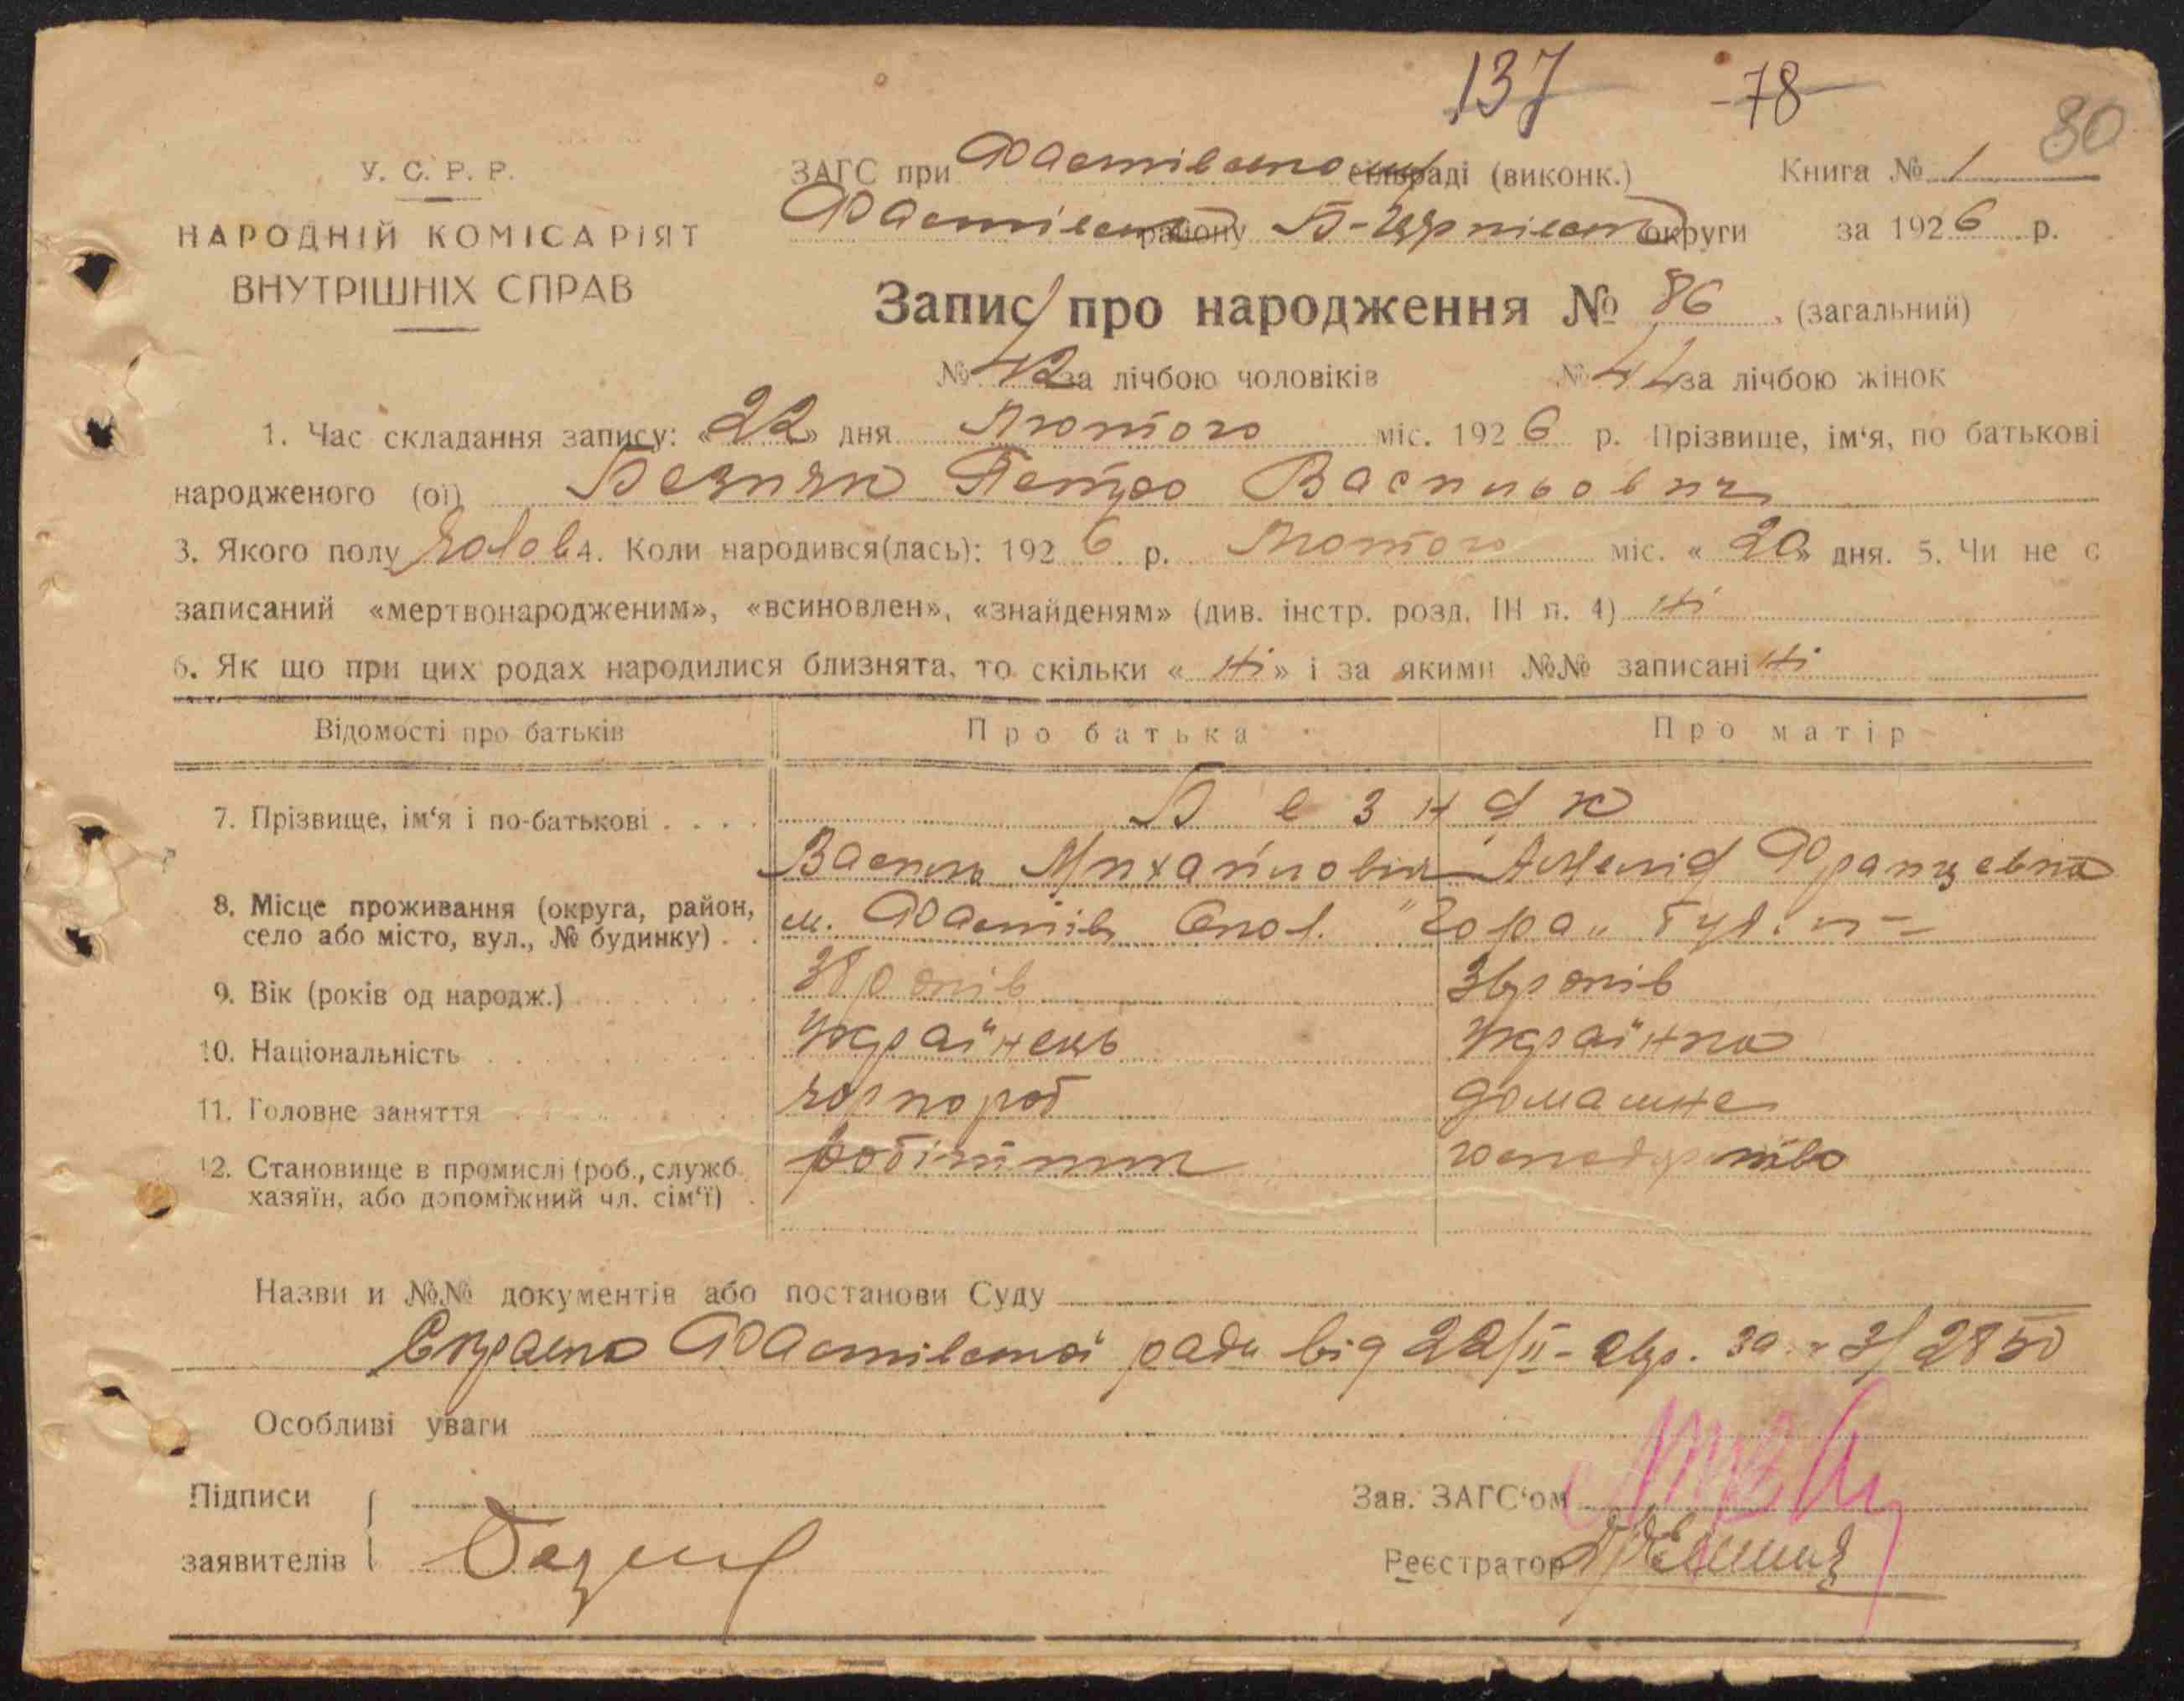 137 -78- 80
У. С. Р. Р. ЗАГС при Фастівсько сільраді (виконк.) Книга № 1
НАРОДНІЙ КОМІСАРІЯТ Фастівськ району Б-Церківськ округи за 1926 р.
ВНУТРІШНІХ СПРАВ
Запис про народження № 86 (загальний)
№ 42 за лічбою чоловіків № 44 за лічбою жінок
1. Час складання запису: «22» дня Лютого міс. 1926 р. Прізвище, ім‘я, по батькові
народженого (ої) Безняк Петро Васильович
3. Якого полу чолов 4. Коли народився(лась): 1926 р. Лютого міс. «20» дня. 5. Чи не є
записаний «мертвонародженим», «всиновлен», «знайденям» (див. інстр. розд. ІН п. 4) Ні
6. Як що при цих родах народилися близнята, то скільки «Ні» і за якими №№ записані Ні
Відомості про батьків Про батька Про матір
7. Прізвище, ім‘я і по-батькові Безняк
Василь Михайлович Амелія Францевна
8. Місце проживання (округа, район, м. Фастів "Гора" буд.
село або місто, вул., № будинку)
9. Вік (років од народж.) років 36 років
10. Національність Українець Українка
11. Головне заняття чорнороб домашнє
12. Становище в промислі (роб., служб. робітник господарство
хазяїн, або допоміжний чл. сім‘ї)
Назви и №№ документів або постанови Суду
Фастівської ради від 22/ІІ-26р. за 2850
Особливі уваги
Підписи Зав. ЗАГС‘ом
заявителів Реєстратор